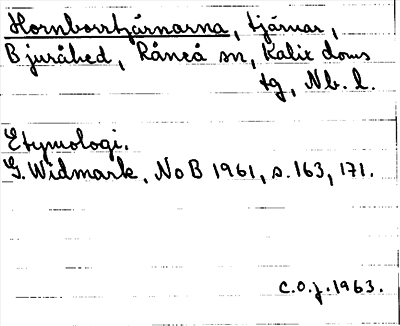 Hornborrtjärnarna, tjärnar,
Bjuråhed, Råneå sn, Kalix doms
tg, Nb. l.
Etymologi.
G. Widmark, NoB 1961, s. 163, 171.
C.O.J. 1963.